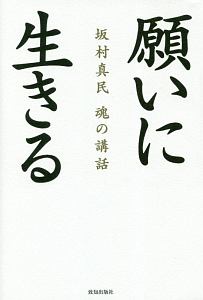 願いに
生きる
坂村真民 魂の講話
致知出版社